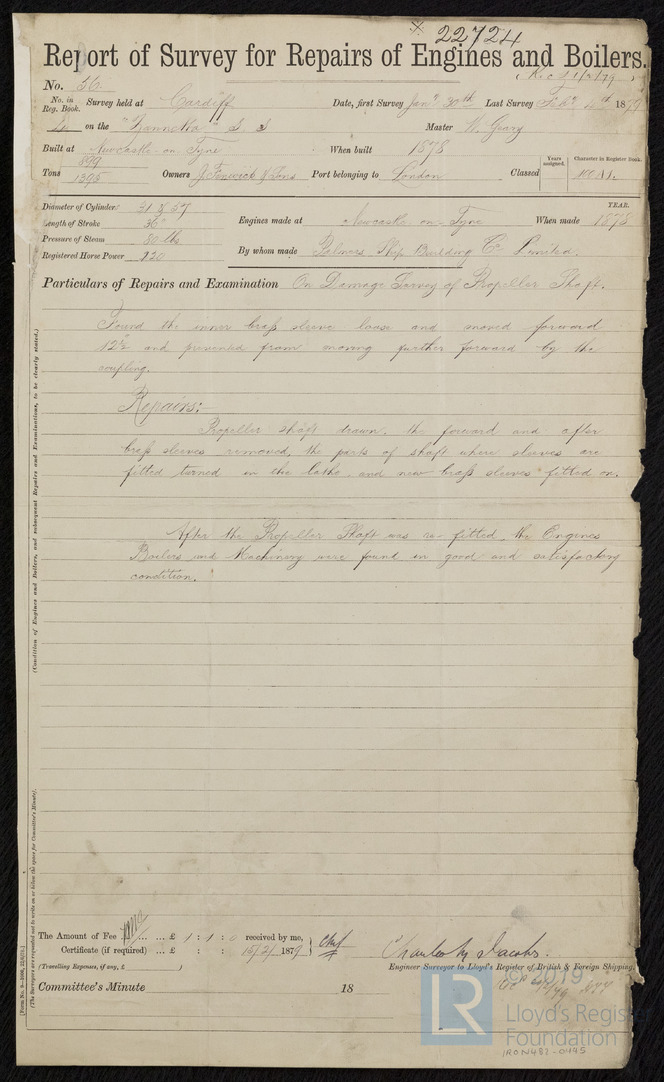 22724
Report of Survey for Repairs of Engines and Boilers.
No. 56.
No. in Reg. Book. Survey held at Cardiff Date, first Survey Jany 30th Last Survey Feby 11th 1879
on the "Zannetta" S. S Master W. Geary
Built at Newcastle-on-Tyne When built 1878
Tons 899 1395 Owners J. Fenwick & Sons Port belonging to London Classed Years assigned. Character in Register Book. 100 A1.
Diameter of Cylinder. 31 & 57
Length of Stroke 36"
Pressure of Steam 80 lbs
Registered Horse Power 220
Engines made at Newcastle-on-Tyne When made YEAR. 1878
By whom made Palmers Ship Building Co Limited.
Particulars of Repairs and Examination On Damage Survey of Propeller Shaft.
Found the inner brass sleeve loose and moved forward
12½ and prevented from moving further forward by the
coupling.
Repairs:
Propeller shaft drawn. the forward and after
brass sleeves removed, the parts of shaft where sleeves are
fitted turned in the lathe, and new brass sleeves fitted on.
After the Propeller Shaft was re-fitted, the Engines
Boilers and Machinery were found in good and satisfactory
condition.
(Condition of Engines and Boilers, and subsequent Repairs and Examinations, to be clearly stated.)
(The Surveyors are requested not to write on or below the space for Committee's Minute).
The Amount of Fee ... ... £ 1 : 1 : 0 received by me,
Certificate (if required) ... £ : : 15/2/ 1879
(Travelling Expenses, if any, £ )
Charles M Jacobs.
Engineer Surveyor to Lloyd's Register of British & Foreign Shipping.
Committee's Minute 18
© 2019
LR Lloyd's Register
Foundation
IRON487-0495